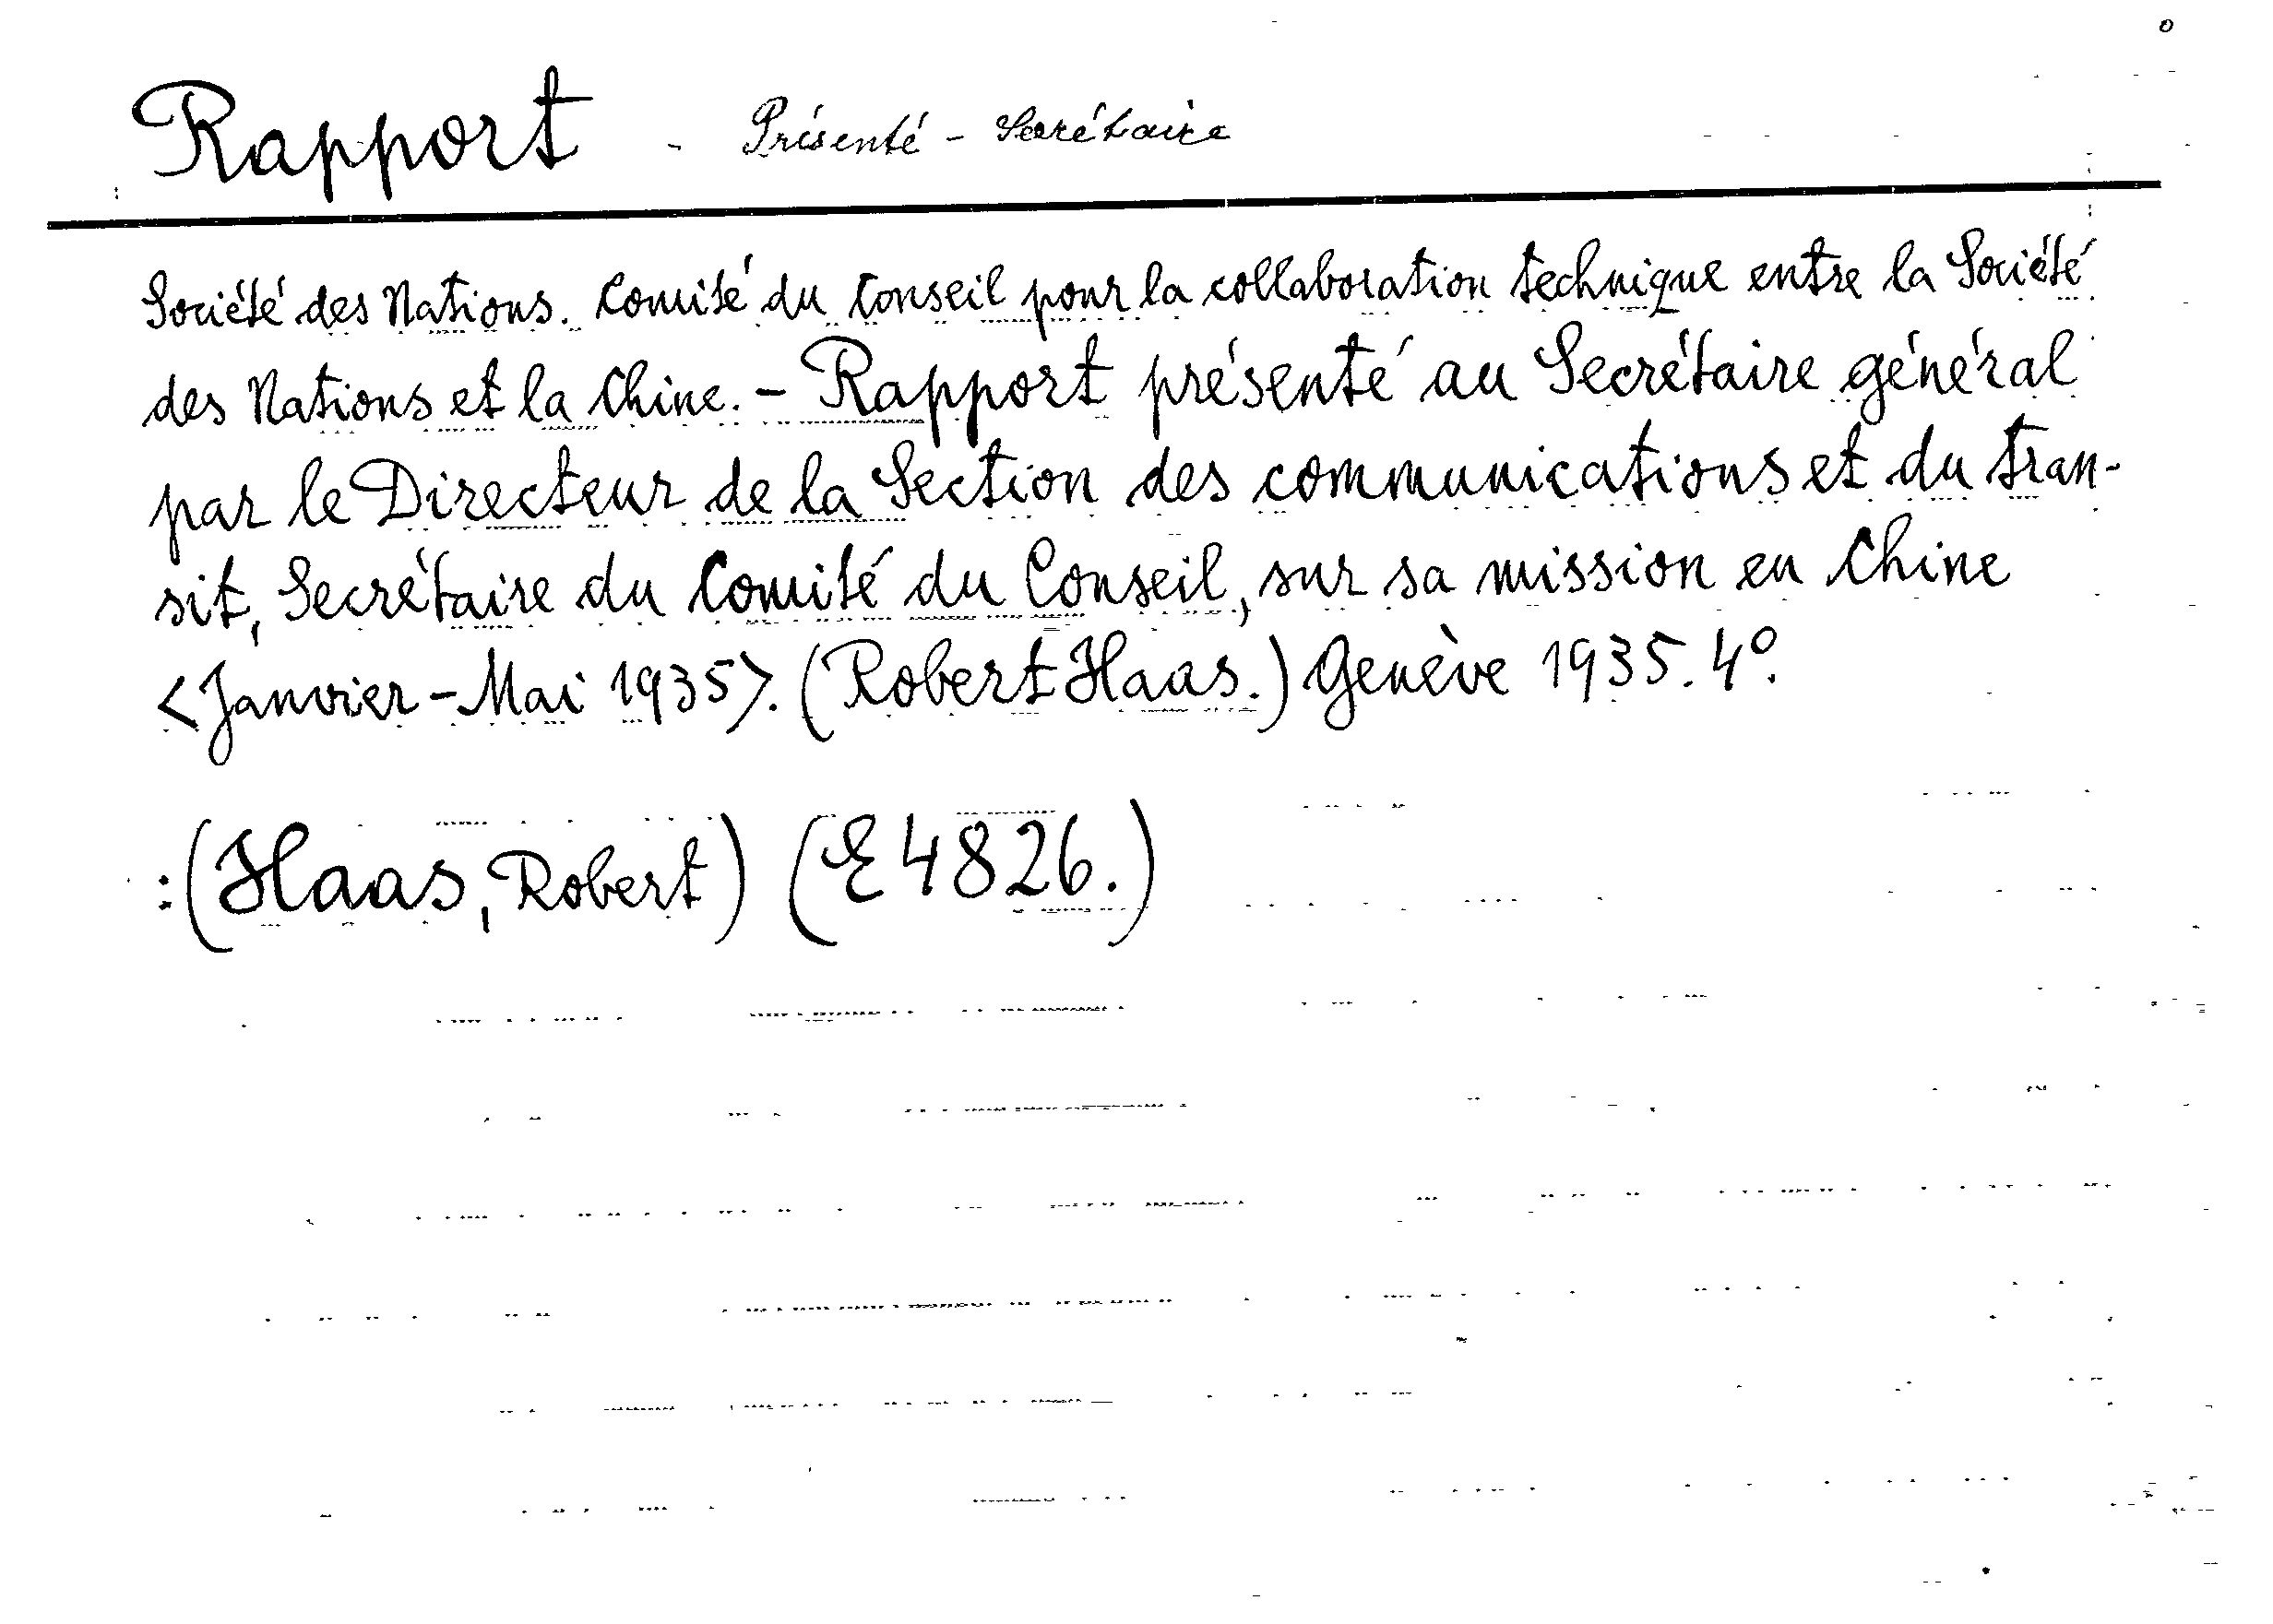 Rapport - Présenté - Secrétaire
Société des Nations. Comité du Conseil pour la collaboration technique entre la Société
des Nations et la Chine. - Rapport présenté au Secrétaire général
par le Directeur de la Section des communications et du tran-
sit, Secrétaire du Comité du Conseil, sur sa mission en Chine
<Janvier - Mai 1935>. (Robert Haas.) Genève 1935. 4º.
:(Haas, Robert) (E 4826.)